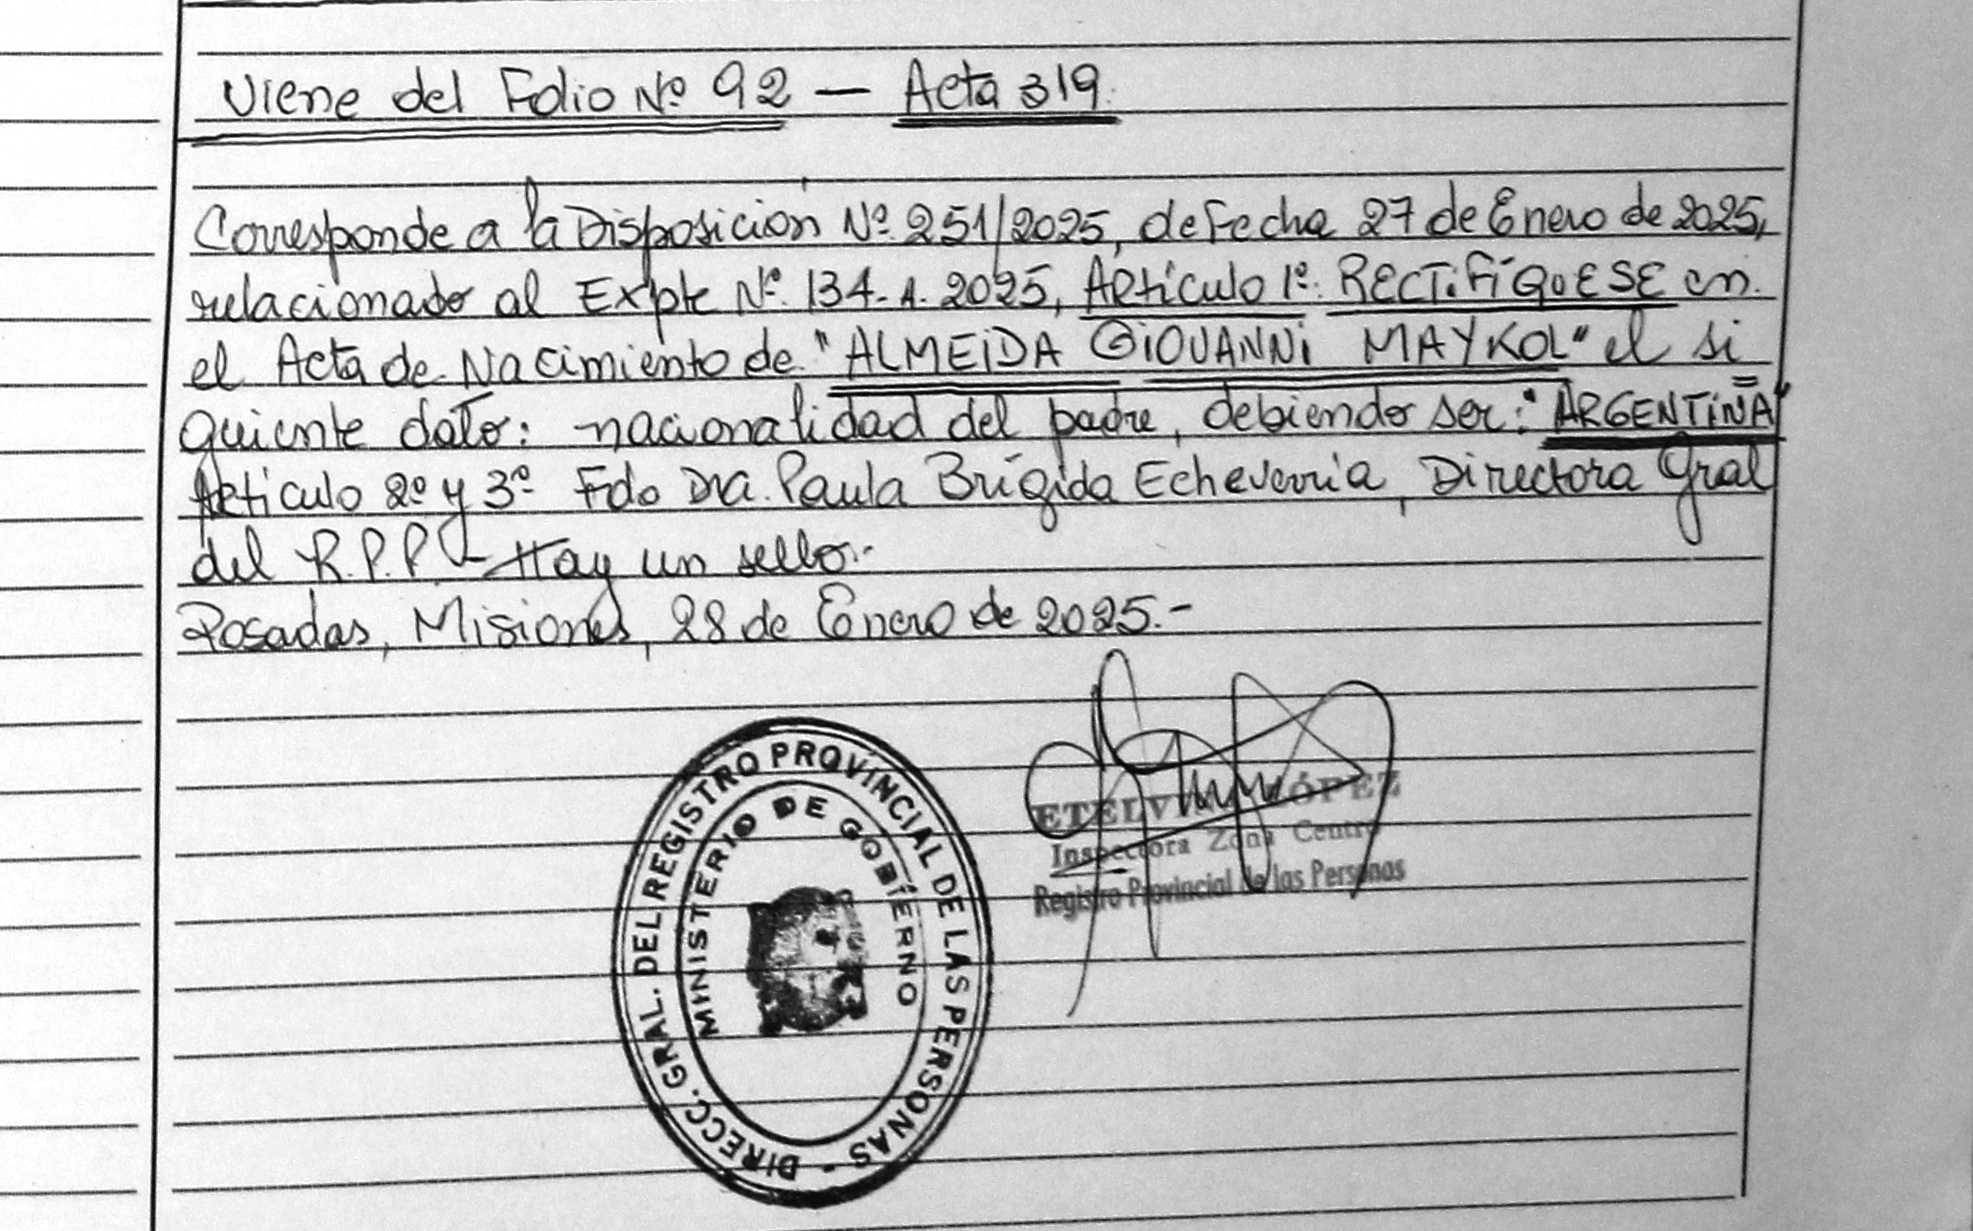 Viene del Folio Nº 92 — Acta 319.
Corresponde a la Disposición Nº 251/2025, de Fecha 27 de Enero de 2025,
relacionado al Expte Nº 134-A-2025, Artículo 1º: RECTIFÍQUESE en
el Acta de Nacimiento de "ALMEIDA GIOVANNI MAYKOL" el si
guiente dato: nacionalidad del padre, debiendo ser: "ARGENTINA"
Artículo 2º y 3º Fdo Dra. Paula Brígida Echeverría, Directora Gral
del R.P.P. - Hay un sello.-
Posadas, Misiones, 28 de Enero de 2025.-
DIRECC. GRAL. DEL REGISTRO PROVINCIAL DE LAS PERSONAS -
MINISTERIO DE GOBIERNO
LÓPEZ
Inspectora Zona Centro
Registro Provincial de las Personas